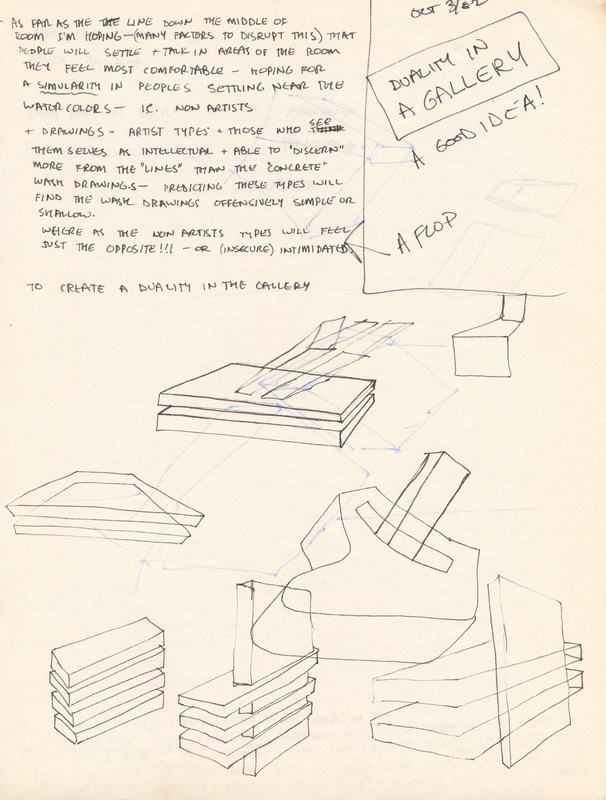 AS FAR AS THE THE LINE DOWN THE MIDDLE OF
ROOM I'M HOPING—(MANY FACTORS TO DISRUPT THIS) THAT
PEOPLE WILL SETTLE + TALK IN AREAS OF THE ROOM
THEY FEEL MOST COMFORTABLE – HOPING FOR
A SIMULARITY IN PEOPLES SETTLING NEAR THE
WATERCOLORS – IE. NON ARTISTS
+ DRAWINGS – ARTIST TYPES + THOSE WHO SEE
THEMSELVES AS INTELLECTUAL + ABLE TO "DISCERN"
MORE FROM THE "LINES" THAN THE "CONCRETE"
WASH DRAWINGS – PREDICTING THESE TYPES WILL
FIND THE WASH DRAWINGS OFFENSIVELY SIMPLE OR
SHALLOW.
WHERE AS THE NON ARTISTS TYPES WILL FEEL
JUST THE OPPOSITE!!! – OR (INSECURE) INTIMIDATED.
TO CREATE A DUALITY IN THE GALLERY
OCT
DUALITY IN
A GALLERY
A GOOD IDEA!
A FLOP